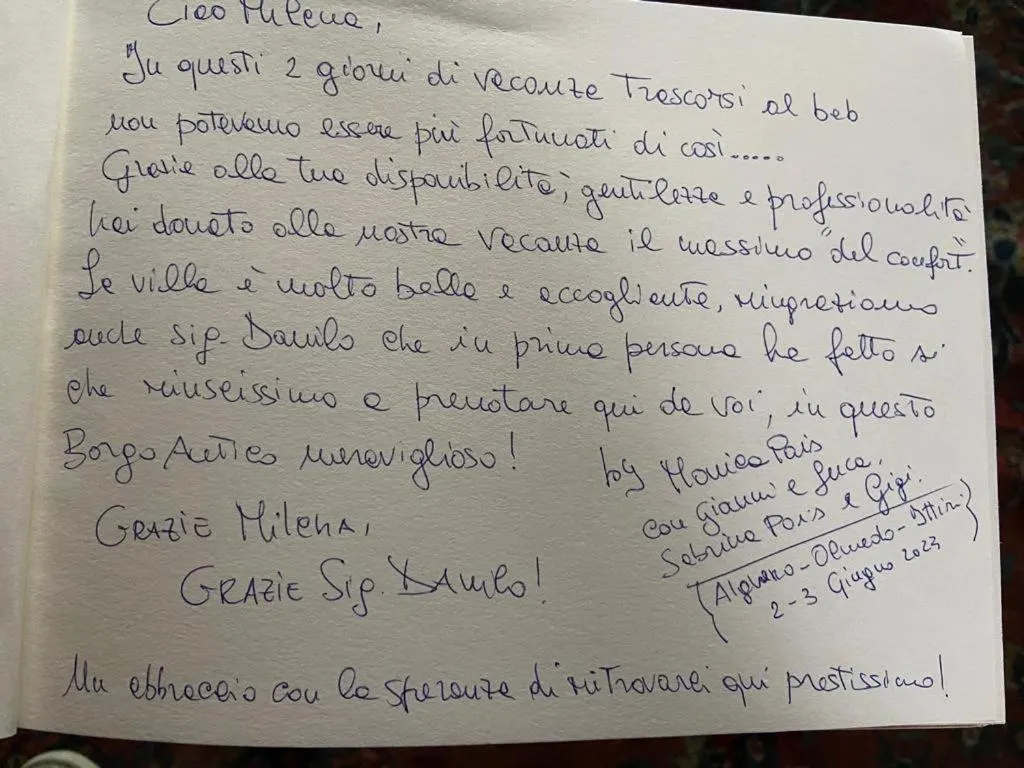 Ciao Milena,
In questi 2 giorni di vacanze trascorsi al beb
non potevamo essere più fortunati di così.....
Grazie alla tua disponibilità, gentilezza e professionalità
hai donato alla nostra vacanza il massimo "del confort".
La villa è molto bella e accogliente, ringraziamo
anche sig. Danilo che in prima persona ha fatto sì
che riuscissimo a prenotare qui da voi, in questo
Borgo Antico meraviglioso!
by Monica Pais
con Gianni e Luca,
Sabrina Pais e Gigi.
(Alghero-Olmedo-Ittiri)
2-3 Giugno 2023
GRAZIE MILENA,
GRAZIE Sig. DANILO!
Un abbraccio con la speranza di ritrovarci qui prestissimo!